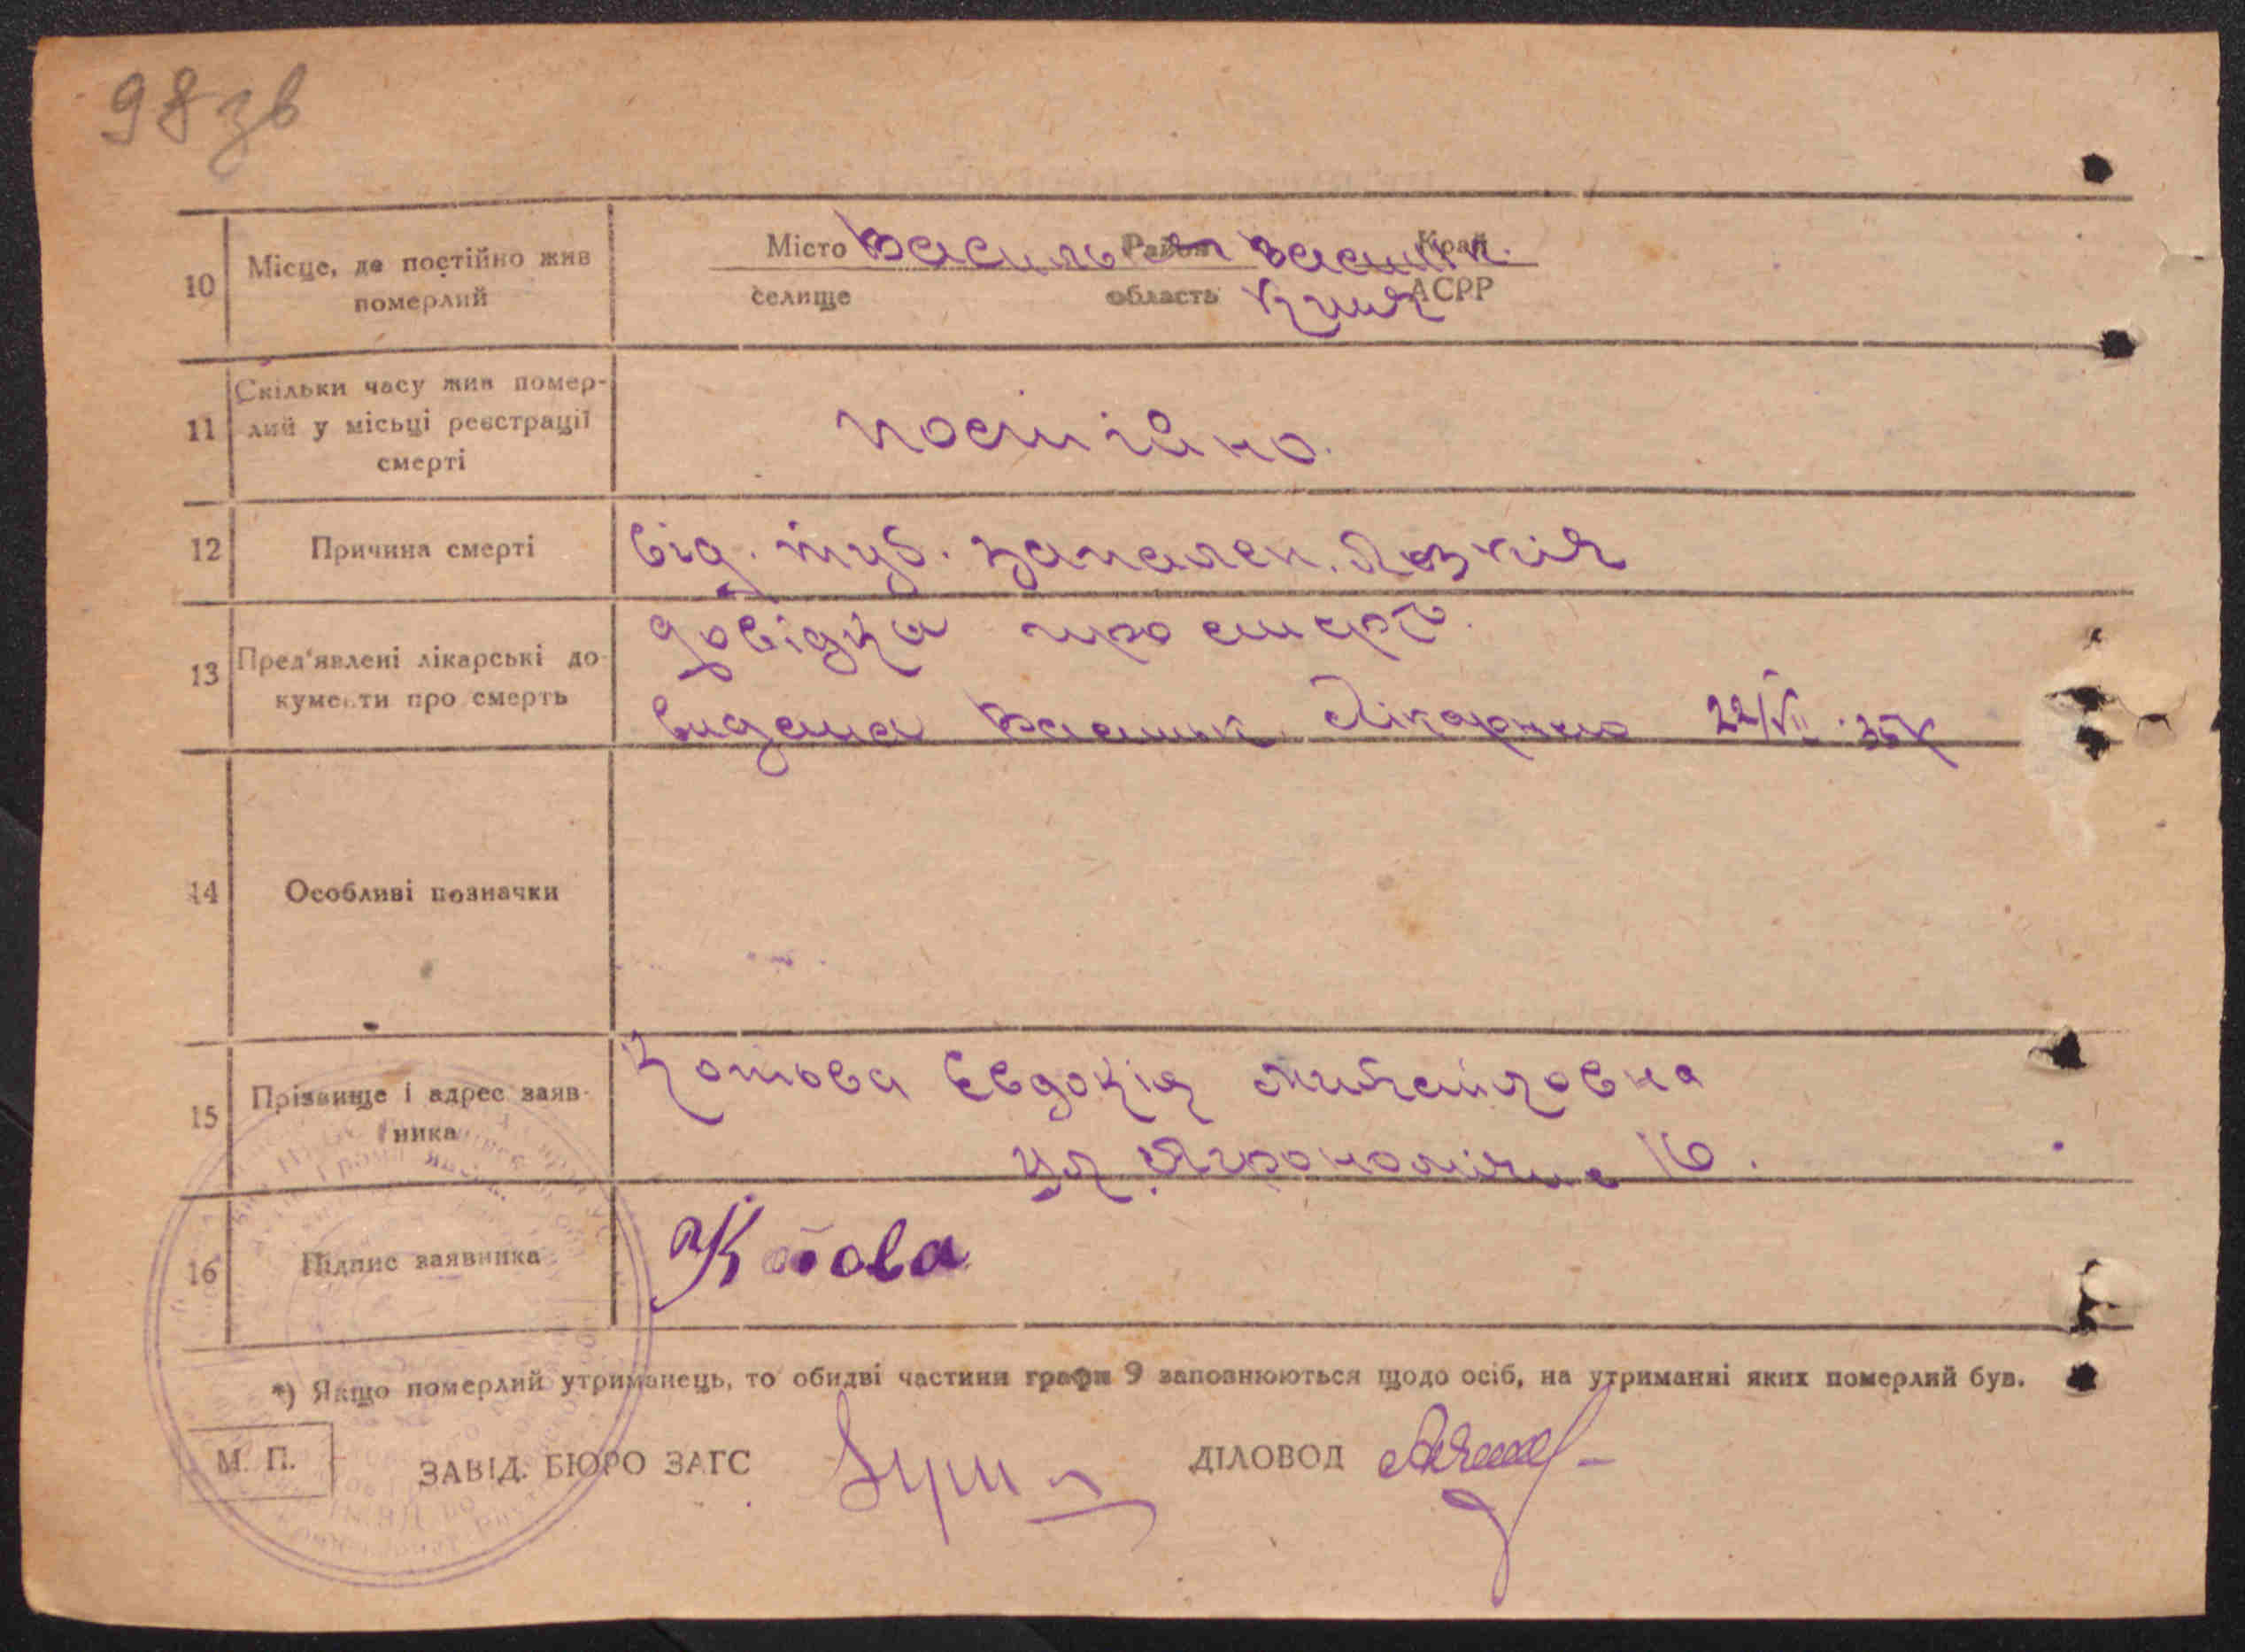 98зв
10 Місце, де постійно жив
померлий
Місто Васильк Район Васильк. Край
селище область Київ АСРР
11 Скільки часу жив помер-
лий у місьці реєстрації
смерті
постійно.
12 Причина смерті
від. туб. запален. Легкія
13 Пред'явлені лікарські до
кументи про смерть
довідка про смерть.
видана Васильк. Лікарнею 22/VII.35р
14 Особливі позначки
15 Прізвище і адрес заяв-
ника
Котова Евдокія Михайловна
ул Агрономічна 16.
16 Підпис заявника
Котова
*) Якщо померлий утриманець, то обидві частини графи 9 заповнюються щодо осіб, на утриманні яких померлий був.
М. П.
ЗАВІД. БЮРО ЗАГС
ДІЛОВОД